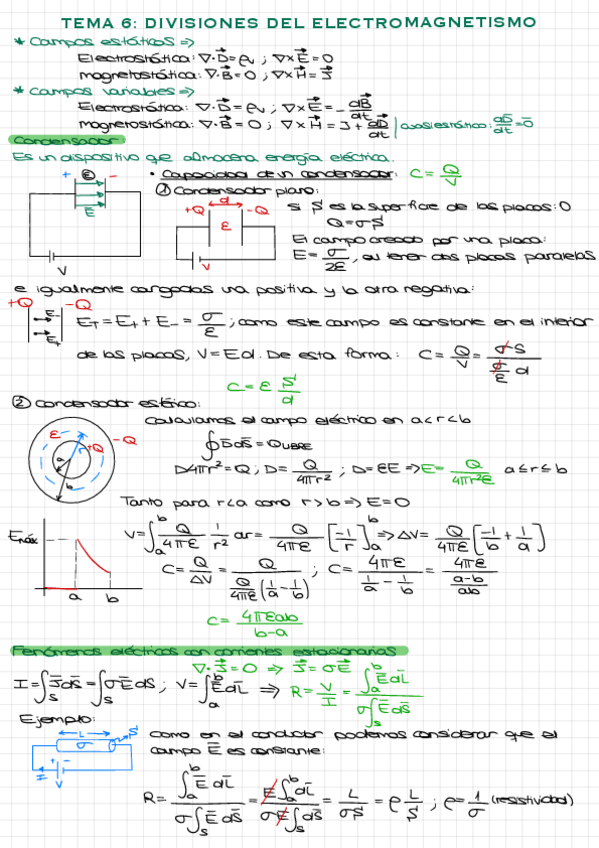 TEMA 6: DIVISIONES DEL ELECTROMAGNETISMO
* Campos estáticos =>
Electrostática: ∇·D⃗=ρv ; ∇×E⃗=0
magnetostática: ∇·B⃗=0 ; ∇×H⃗=J⃗
* Campos variables =>
Electrostática: ∇·D⃗=ρv ; ∇×E⃗=-dB⃗/dt
magnetostática: ∇·B⃗=0 ; ∇×H⃗=J+dD⃗/dt | cuasiestático: dD̄/dt=0̄
Condensador
Es un dispositivo que almacena energía eléctrica.
• Capacidad de un condensador: C=Q/V
+ - E⃗ V
① Condensador plano:
+Q d -Q ε V
si S es la superficie de las placas:
Q=σS
El campo creado por una placa:
E=σ/2ε, al tener dos placas paralelas
e igualmente cargadas una positiva y la otra negativa:
+Q -Q E- E+
E_T=E_+ + E_- = σ/ε ; como este campo es constante en el interior
de las placas, V=Ed. De esta forma: C=Q/V=σS/(σ/ε d)
C=ε S/d
② Condensador esférico:
ε r -Q +Q a b
Calculamos el campo eléctrico en a<r<b
∮D̄ds̄=Q_LIBRE
D·4πr²=Q ; D=Q/4πr² ; D=εE => E=Q/4πr²ε a≤r≤b
Tanto para r<a como r>b => E=0
Emáx a b
V=∫_a^b Q/4πε 1/r² dr=Q/4πε [-1/r]_a^b => ΔV=Q/4πε [-1/b+1/a]
C=Q/ΔV=Q/(Q/4πε (1/a-1/b)) ; C=4πε/(1/a-1/b)=4πε/((a-b)/ab)
C=4πεab/(b-a)
Fenómenos eléctricos con corrientes estacionarias
∇·J⃗=0 => J⃗=σE⃗
I=∫_S J̄ds̄=∫_S σĒds̄ ; V=∫_a^b ĒdL̄ => R=V/I=∫_a^b ĒdL̄/(σ∫_S Ēds̄)
Ejemplo:
L S σ I V
Como en el conductor podemos considerar que el
campo Ē es constante:
R=∫_a^b ĒdL̄/(σ∫_S Ēds̄)=E∫_a^b dL̄/(σE∫_S ds̄)=L/σS=ρ L/S ; ρ=1/σ (resistividad)